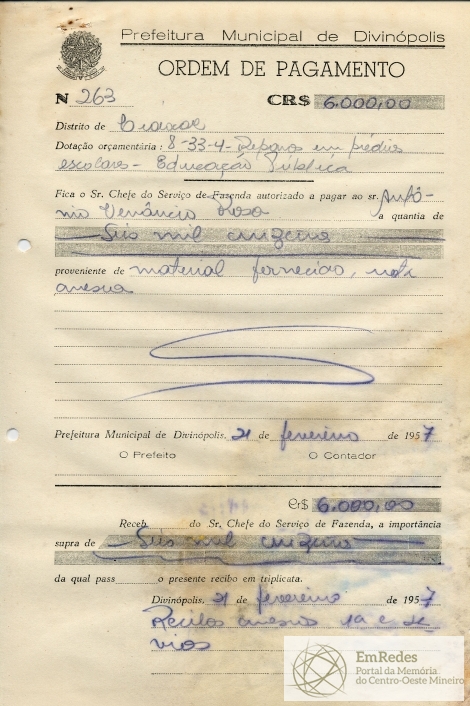 Prefeitura Municipal de Divinópolis
ORDEM DE PAGAMENTO
N 263 CR$ 6.000,00
Distrito de
Dotação orçamentária: 8-33-4-Reparos em prédios
escolares - Educação Pública
Fica o Sr. Chefe do Serviço de Fazenda autorizado a pagar ao sr. Antô-
nio Venâncio Rosa a quantia de
Seis mil cruzeiros
proveniente de material fornecido, nota
anexa
Prefeitura Municipal de Divinópolis, 21 de fevereiro de 1957
O Prefeito O Contador
Cr$ 6.000,00
Receb do Sr. Chefe do Serviço de Fazenda, a importância
supra de Seis mil cruzeiros
da qual pass o presente recibo em triplicata.
Divinópolis, 21 de fevereiro de 1957
Recibos anexos
EmRedes
Portal da Memória
do Centro-Oeste Mineiro